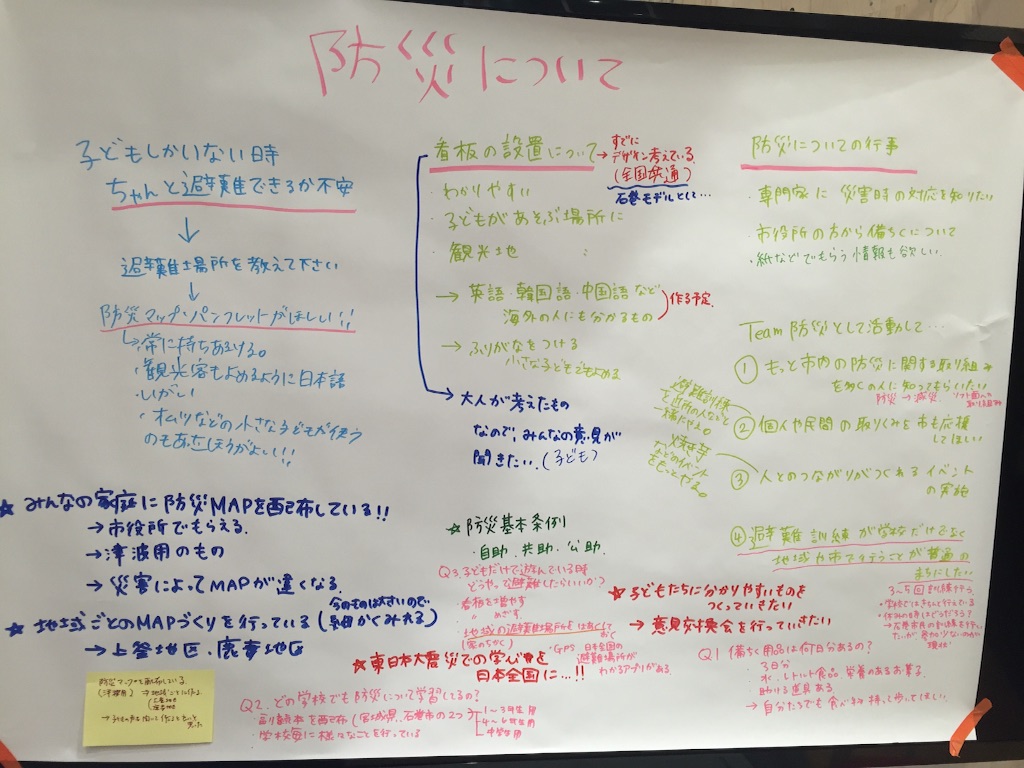 防災について
子どもしかいない時
ちゃんと避難できるか不安
↓
避難場所を教えて下さい
↓
防災マップ・パンフレットがほしい!!
→常に持ちあるける。
・観光客もよめるように日本語
いがい
・オムツなどの小さな子どもが使う
のもあったほうがよい!!
看板の設置について
→すでに
デザイン考えている
(全国共通)
石巻モデルとして…
・わかりやすい
・子どもがあそぶ場所に
・観光地 〃
→英語・韓国語・中国語など
海外の人にも分かるもの
作る予定
→ふりがなをつける
小さな子どもでもよめる
→大人が考えたもの
なので、みんなの意見が
聞きたい。(子ども)
防災についての行事
・専門家に災害時の対応を知りたい
・市役所の方から備ちくについて
・紙などでもらう情報も欲しい
Team防災として活動して…
①もっと市内の防災に関する取り組み
を多くの人に知ってもらいたい
防災→減災
避難訓練
②個人や民間の取りくみを市も応援
してほしい
などのイベント
をもっとやる。
③人とのつながりがつくれるイベント
の実施
④避難訓練が学校だけでなく
地域や市で行うことが普通の
まちにしたい
3~5回訓練を行う
・学校ではきちんと行えている
→石巻市民の訓練も行い
たいが参加が少ないのが
現状
★みんなの家庭に防災MAPを配布している!!
→市役所でもらえる
→津波用のもの
→災害によってMAPが違くなる
★地域ごとのMAPづくりを行っている
(今のものは大きいので、
細かくみれる)
→上釜地区、鹿妻地区
★防災基本条例
・自助・共助・公助
Q3.子どもだけで遊んでいる時
どうやって避難したらいいか?
・看板を増やす
〃 めざす
地域の避難場所をはあくして
おく
(家のちかく)
・GPS 日本全国の
避難場所が
わかるアプリがある
★子どもたちに分かりやすいものを
つくっていきたい
→意見交換会を行っていきたい
★東日本大震災での学びを
日本全国に…!!
Q2.どの学校でも防災について学習してるの?
・副読本を配布(宮城県、石巻市の2つ)
1~3年生用
4~6年生用
中学生用
・学校毎に様々なことを行っている
Q1 備ちく用品は何日分あるの?
・3日分
水、レトルト食品、栄養のあるお菓子
助ける道具ある
→自分たちでも食べ物持って歩いてほしい
防災マップを配布している。
(津波用)